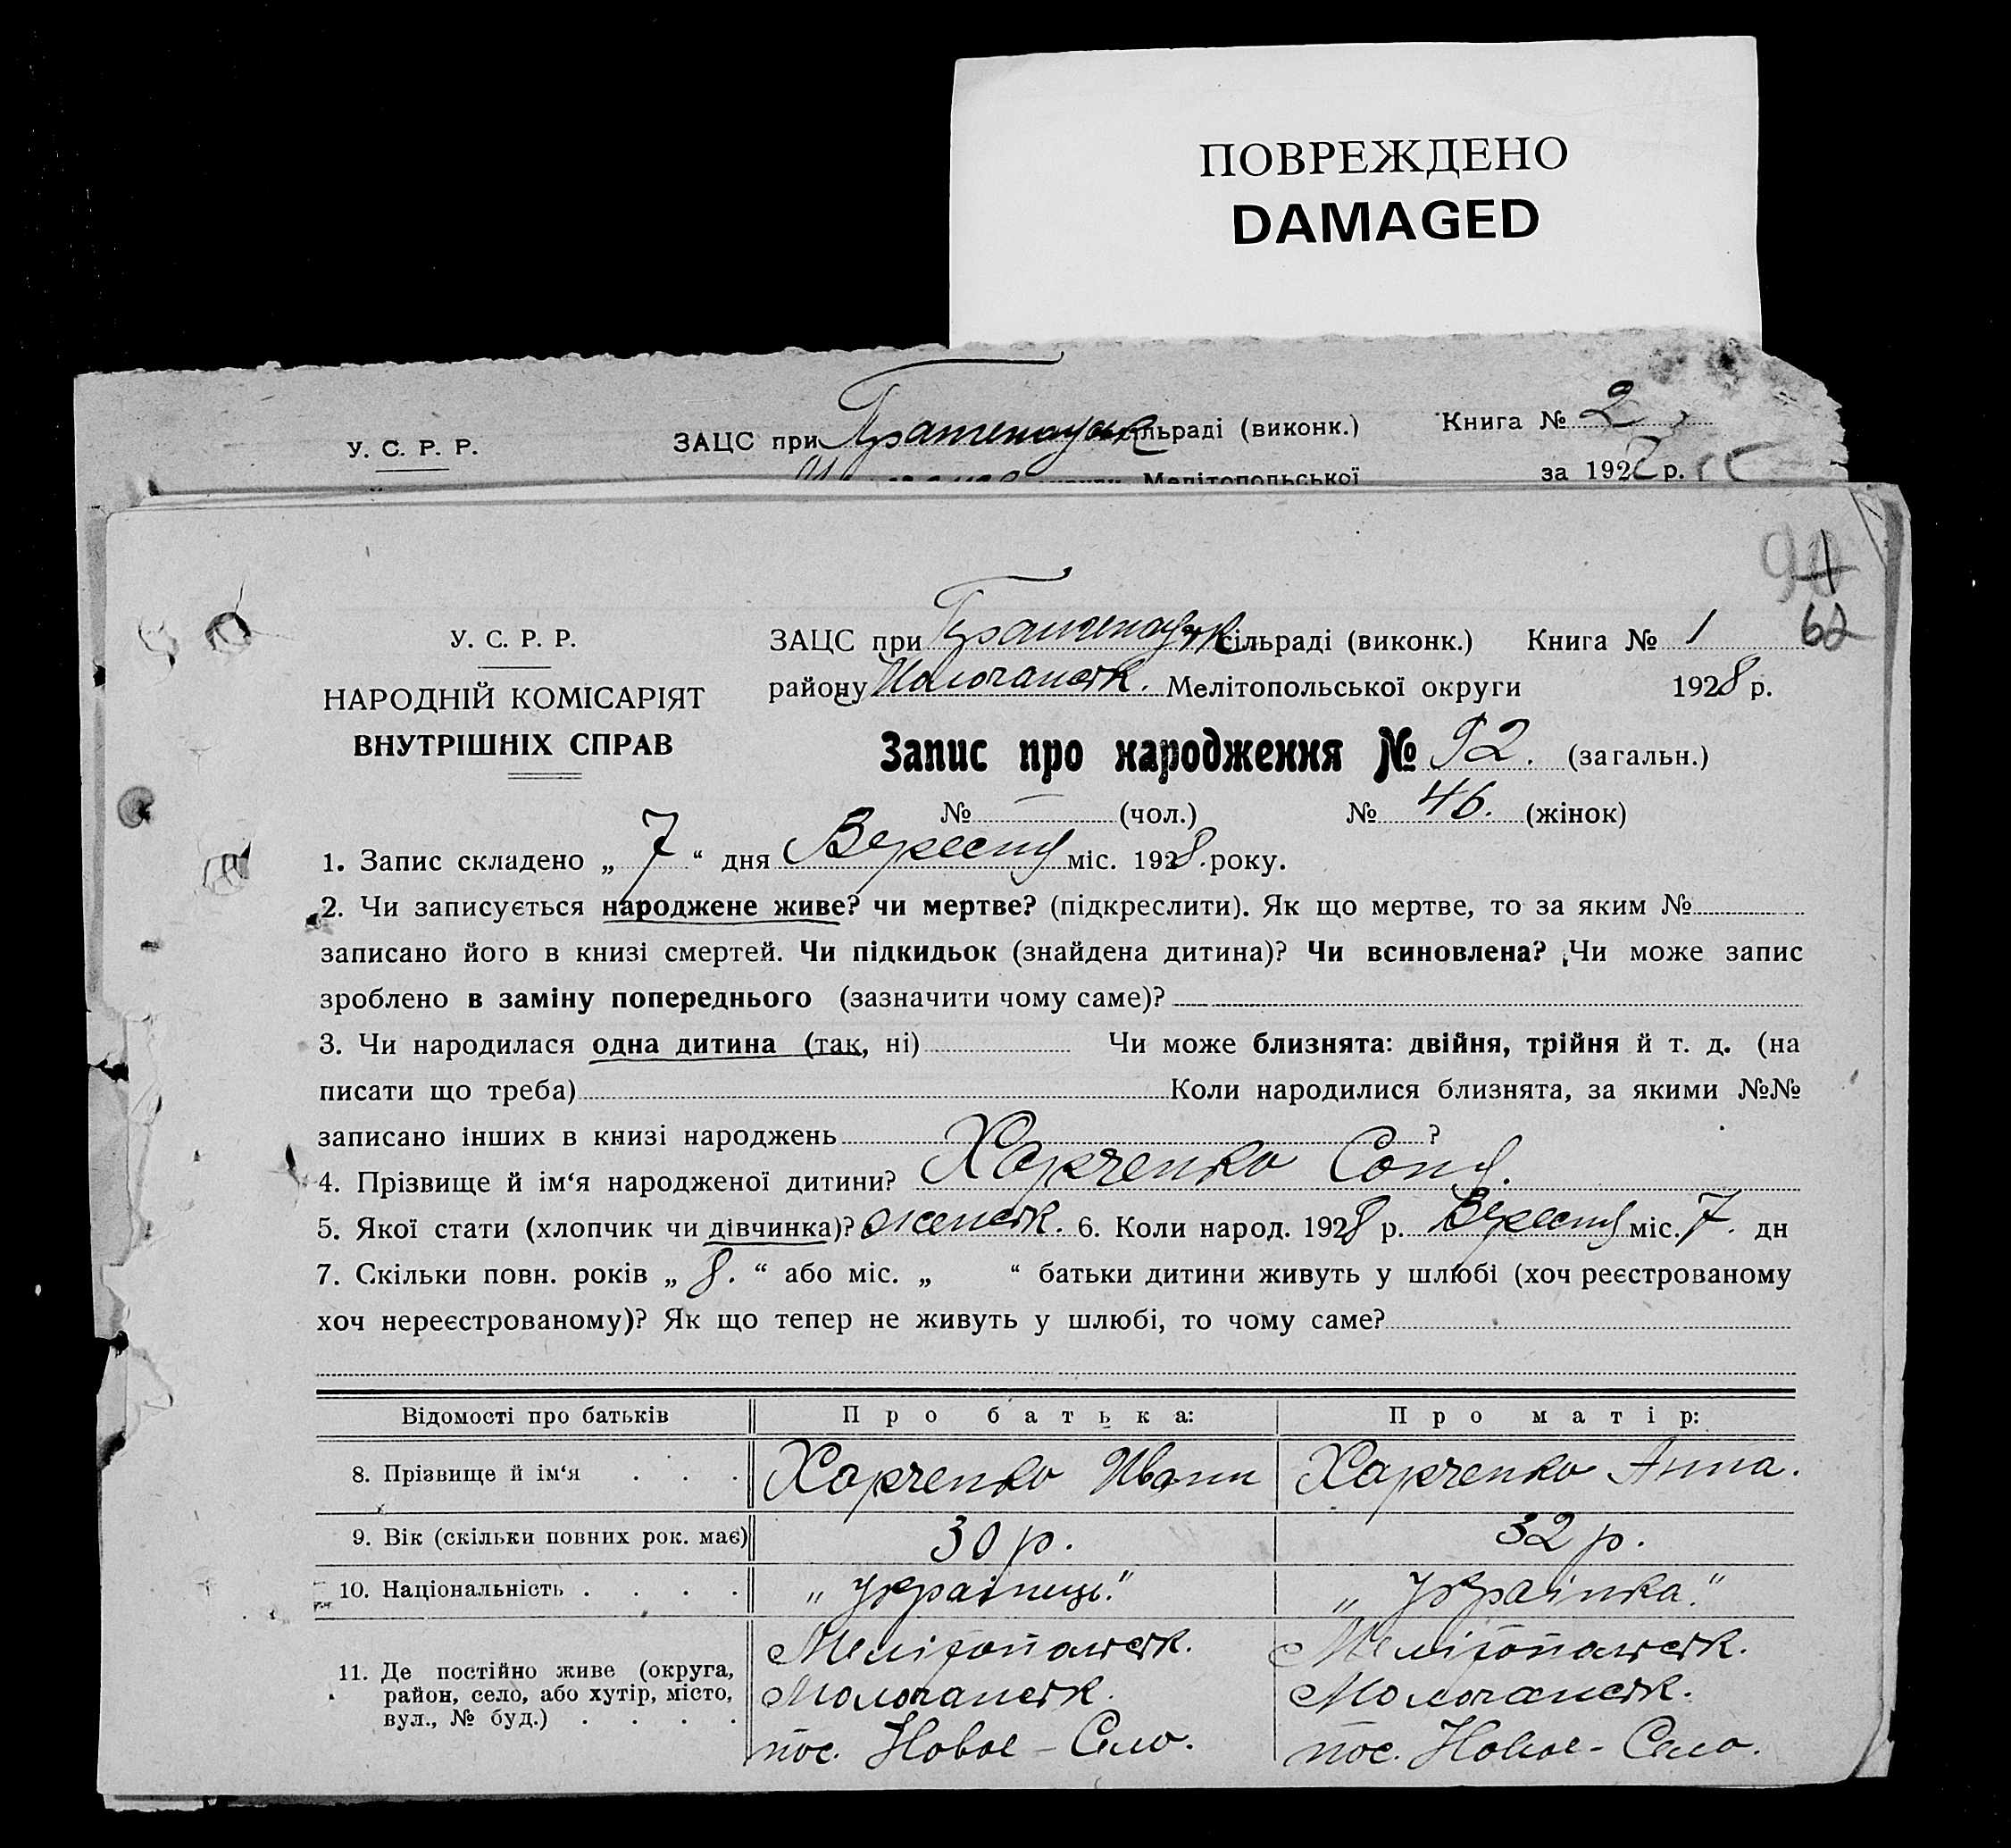 ПОВРЕЖДЕНО
DAMAGED
У. С. Р. Р.
ЗАЦС при сільраді (виконк.) Книга № 2
Мелітопольської за 192 р.
91
62
У. С. Р. Р.
ЗАЦС при сільраді (виконк.) Книга № 1
НАРОДНІЙ КОМІСАРІЯТ
району Молочанськ. Мелітопольської округи 1928 р.
ВНУТРІШНІХ СПРАВ
Запис про народження № 92. (загальн.)
№ — (чол.) № 46. (жінок)
1. Запис складено „ 7 “ дня Вересня міс. 1928. року.
2. Чи записується народжене живе? чи мертве? (підкреслити). Як що мертве, то за яким №
записано його в книзі смертей. Чи підкидьок (знайдена дитина)? Чи всиновлена? Чи може запис
зроблено в заміну попереднього (зазначити чому саме)?
3. Чи народилася одна дитина (так, ні) Чи може близнята: двійня, трійня й т. д. (на
писати що треба) Коли народилися близнята, за якими №№
записано інших в книзі народжень ?
4. Прізвище й ім‘я народженої дитини? Харченко Соня.
5. Якої стати (хлопчик чи дівчинка)? женськ. 6. Коли народ. 1928 р. Вересня міс. 7. дн
7. Скільки повн. років „ 8. “ або міс. „ “ батьки дитини живуть у шлюбі (хоч реєстрованому
хоч нереєстрованому)? Як що тепер не живуть у шлюбі, то чому саме?
Відомості про батьків Про батька: Про матір:
8. Прізвище й ім‘я . . . Харченко Иван Харченко Анна.
9. Вік (скільки повних рок. має) 30 р. 32 р.
10. Національність . . . . „Украінець.“ „Украінка.“
11. Де постійно живе (округа, район, село, або хутір, місто, вул., № буд.) . . . .
Мелітопольск. Мелітопольск.
Молочанськ. Молочанськ.
пос. Новое-Село. пос. Новое-Село.